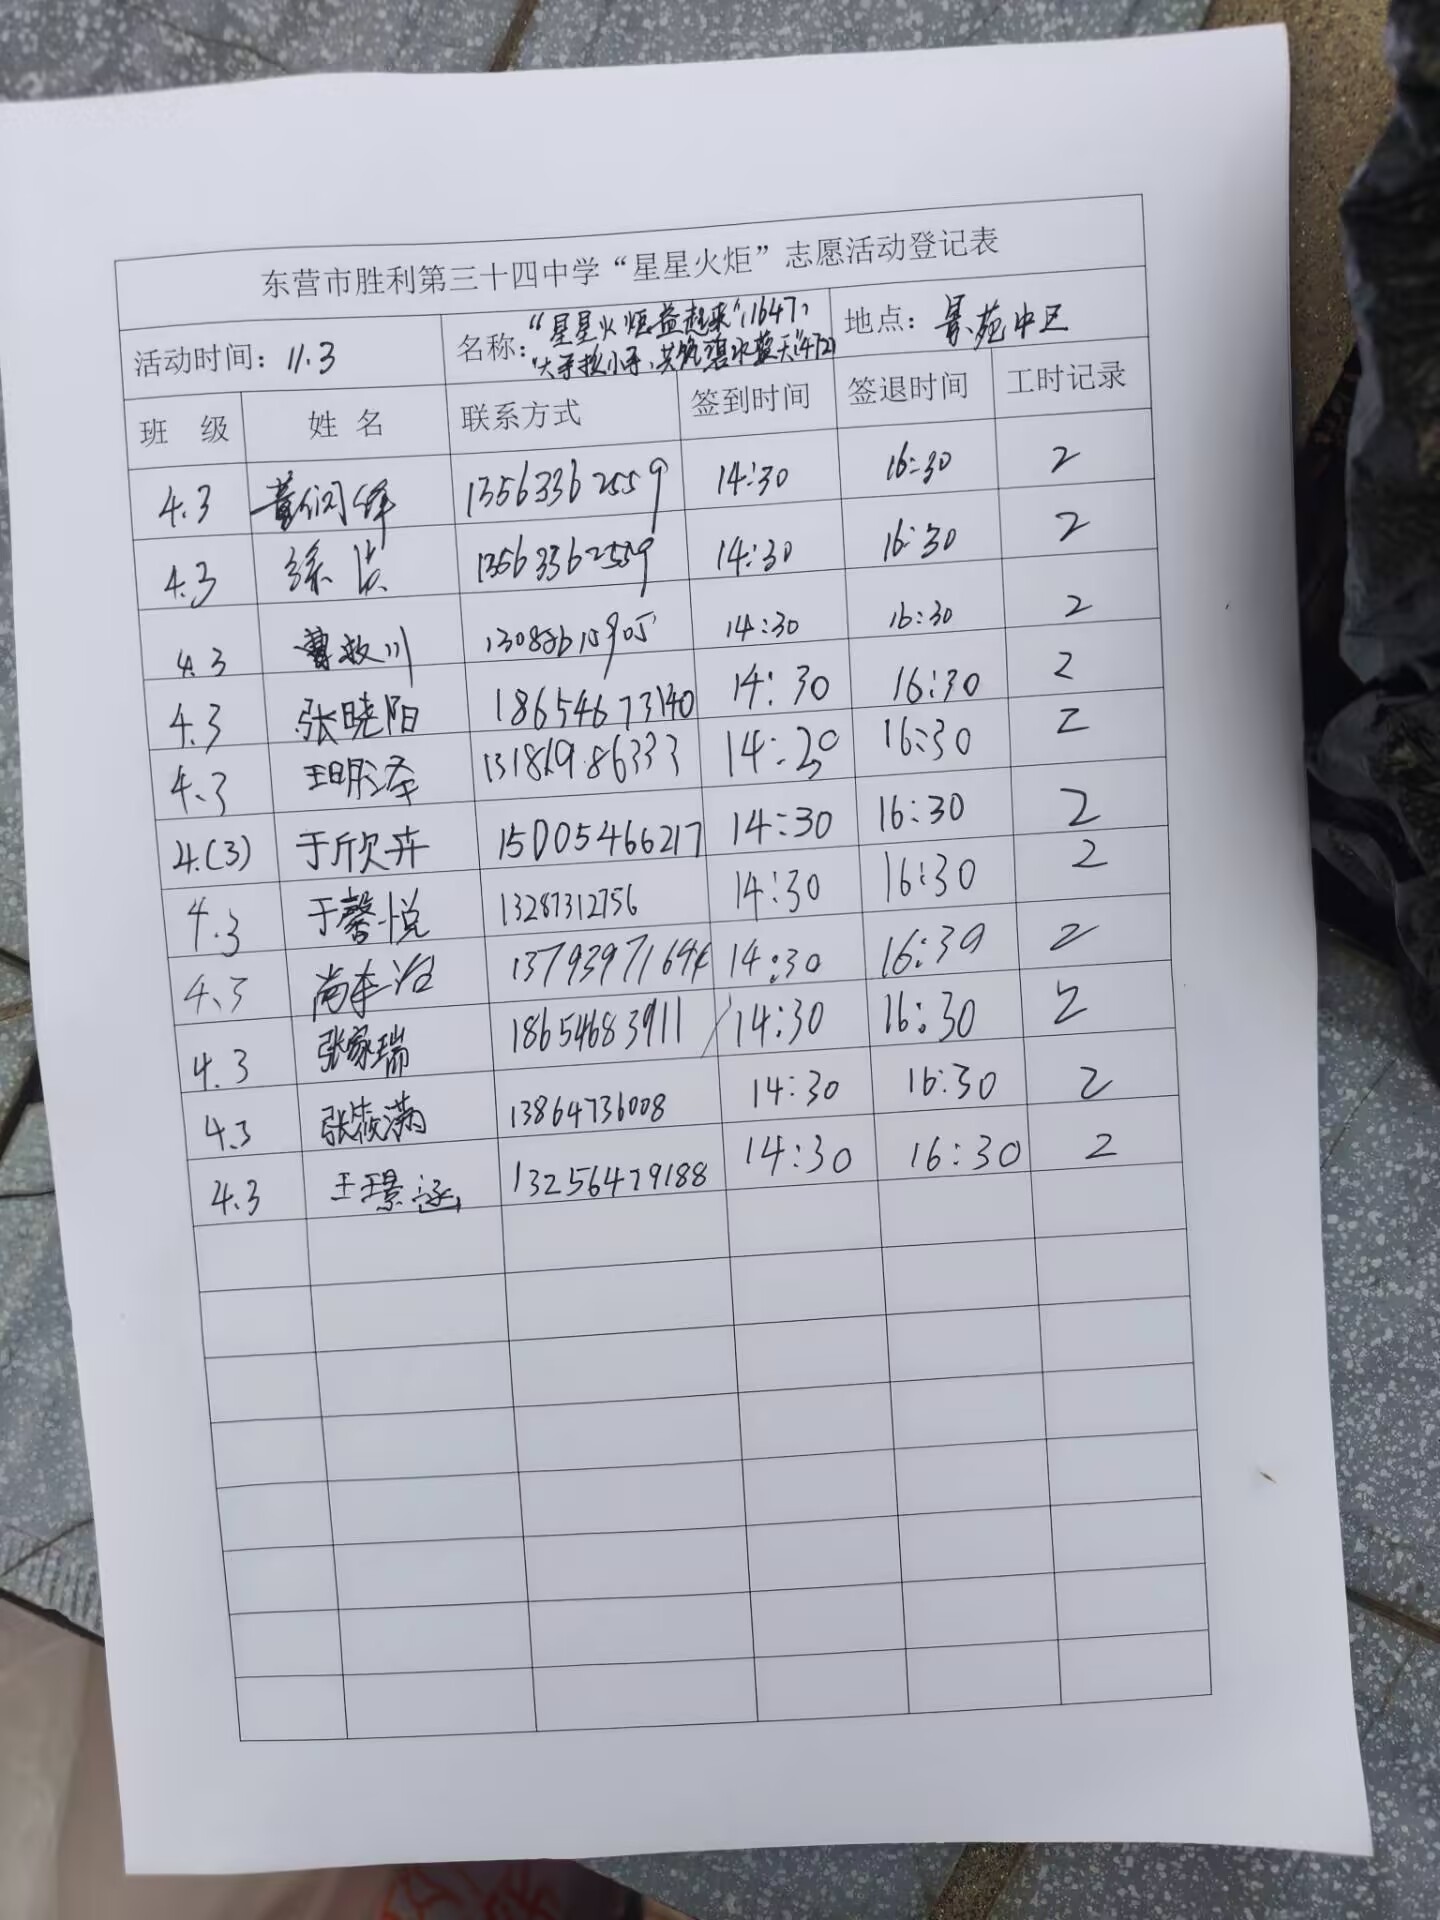 东营市胜利第三十四中学“星星火炬”志愿活动登记表
活动时间：11.3 名称：“星星火炬益起来”（1647） 地点：景苑中区
“大手拉小手，共筑碧水蓝天”（472）
班 级 姓 名 联系方式 签到时间 签退时间 工时记录
4.3 13563362559 14:30 16:30 2
4.3 徐 13563362559 14:30 16:30 2
4.3 曹牧川 14:30 16:30 2
4.3 张晓阳 18654673140 14:30 16:30 2
4.3 王明泽 14:30 16:30 2
4.(3) 于欣卉 15005466217 14:30 16:30 2
4.3 于馨悦 13287312756 14:30 16:30 2
4.3 尚 14:30 16:30 2
4.3 张家瑞 18654683911 14:30 16:30 2
4.3 张筱满 13864736008 14:30 16:30 2
4.3 王璟涵 13256479188 14:30 16:30 2